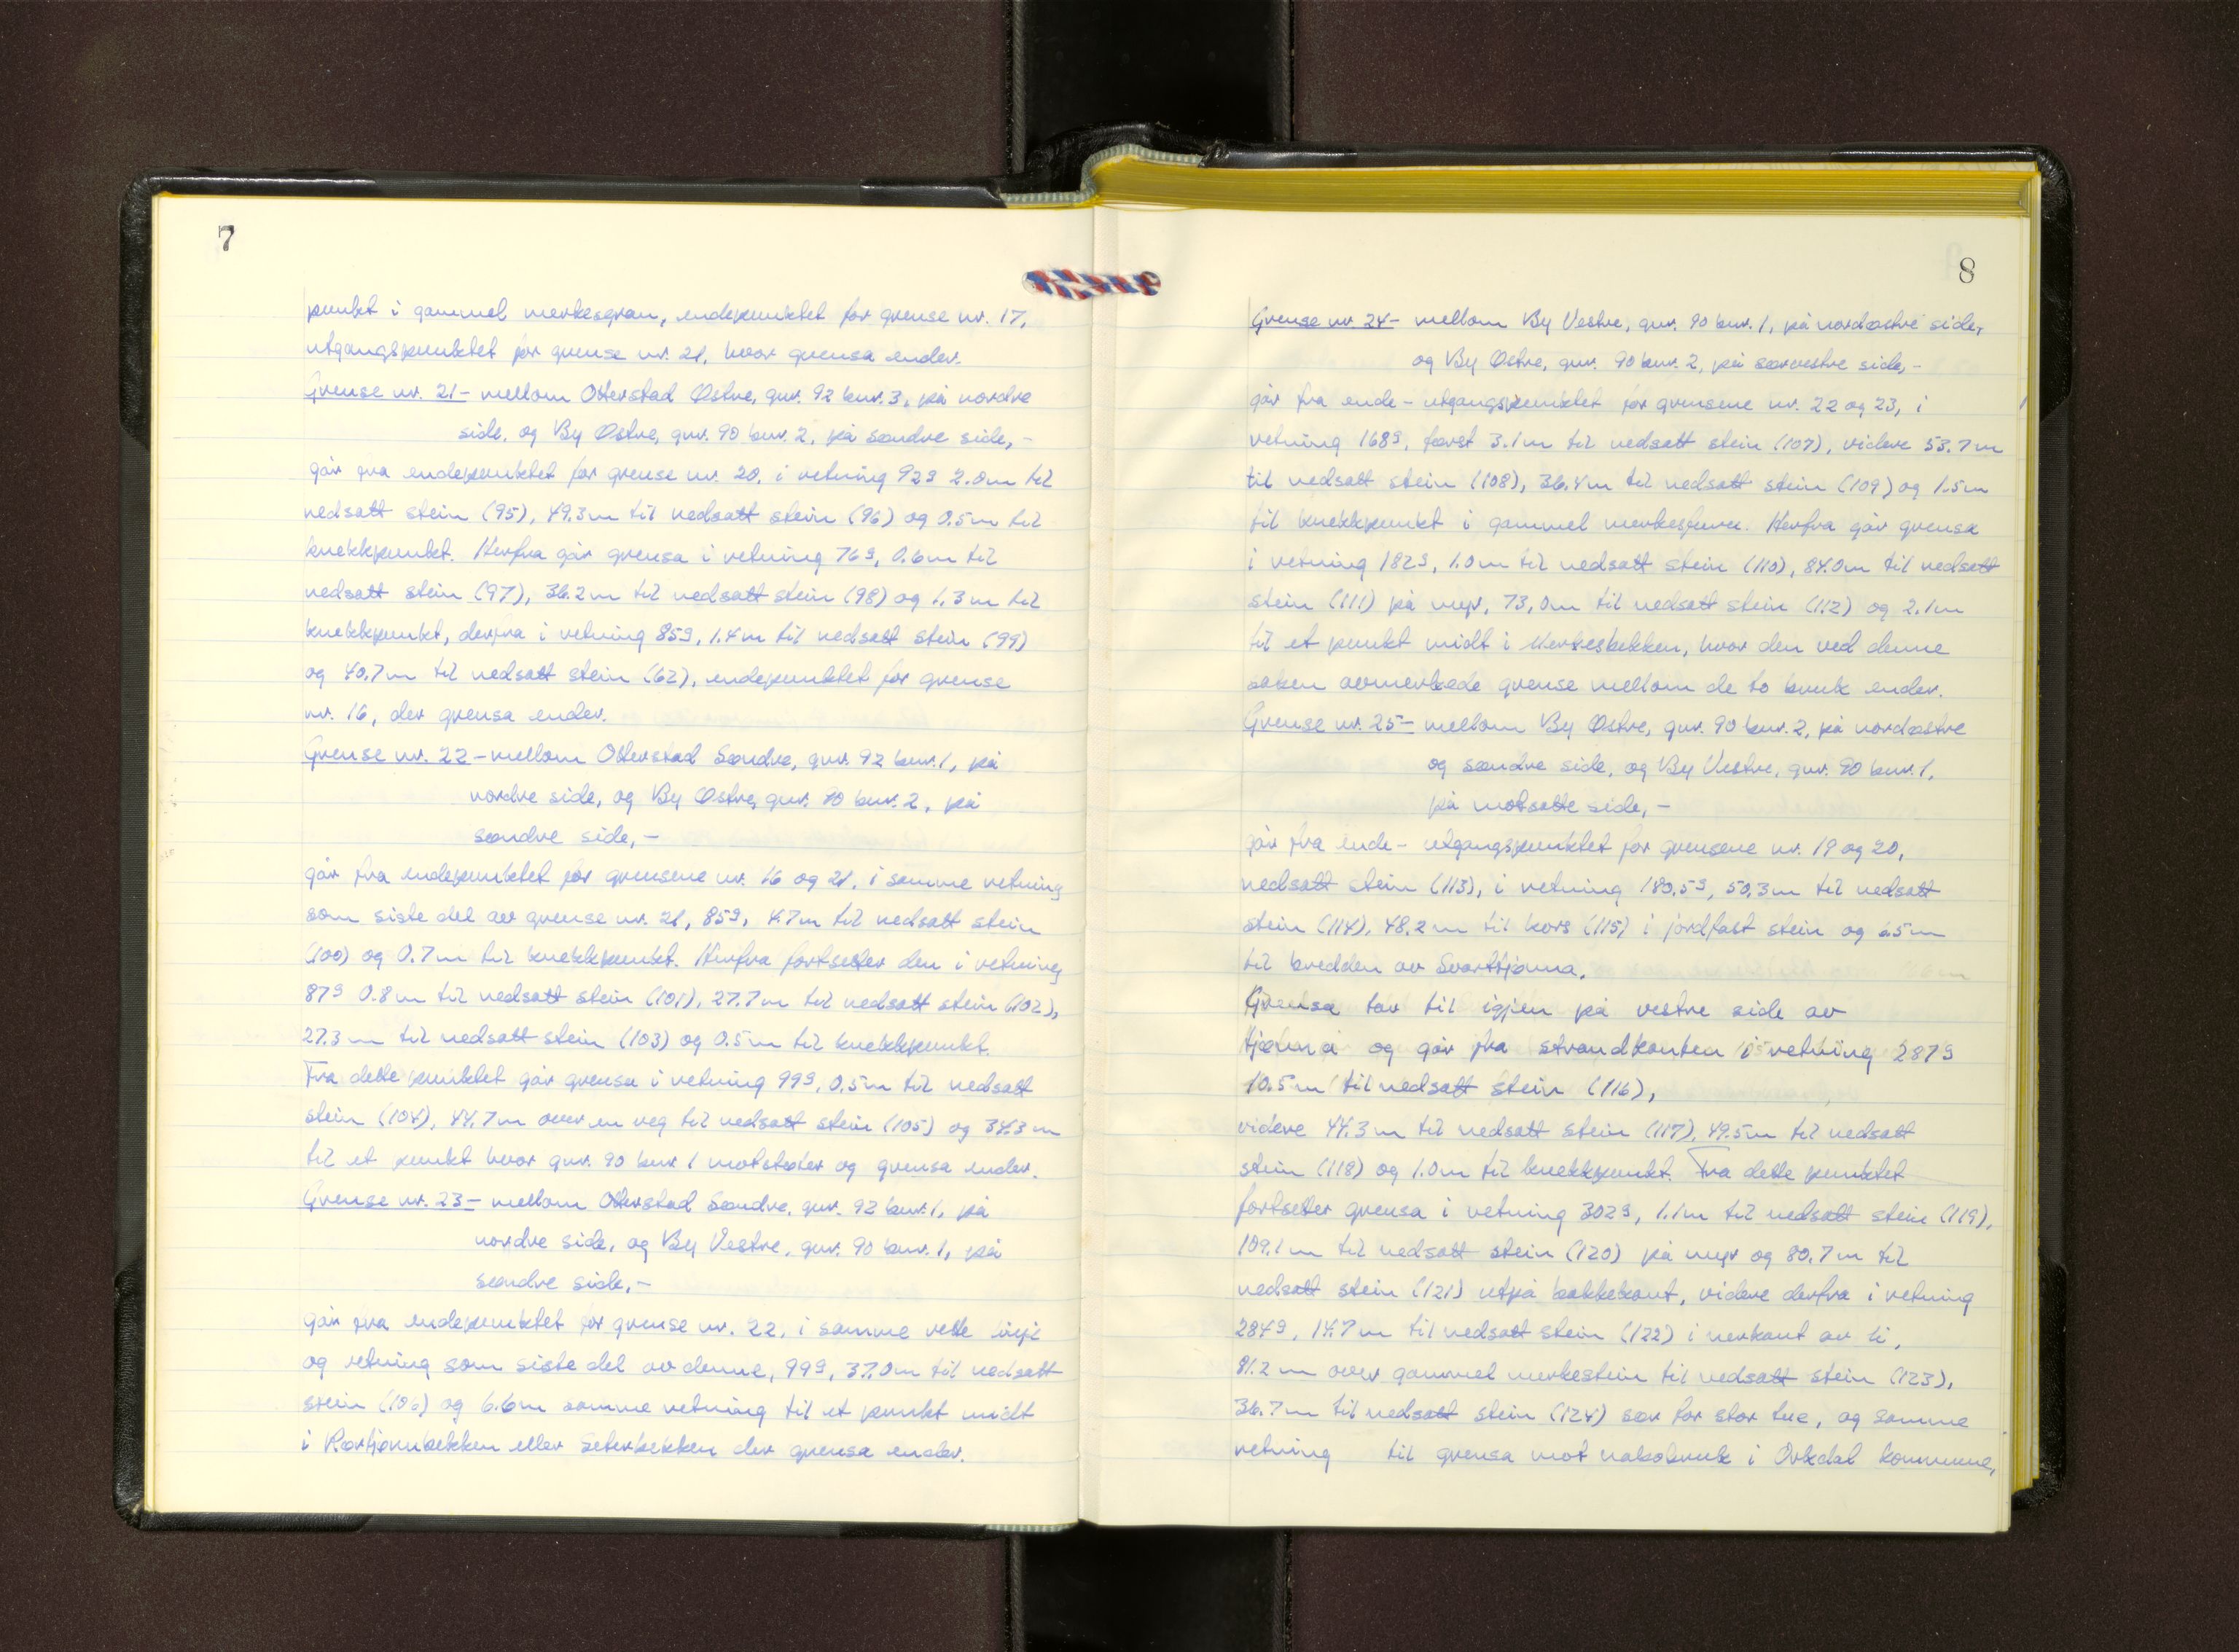 7
punkt i gammel merkesgran, endepunktet for grense nr. 17,
utgangspunktet for grense nr. 21, hvor grensa ender.
Grense nr. 21 - mellom Otterstad Østre, gnr. 92 bnr. 3, på nordre
side, og By Østre, gnr. 90 bnr. 2, på søndre side, -
går fra endepunktet for grense nr. 20, i retning 92g 2.0m til
nedsatt stein (95), 49.3m til nedsatt stein (96) og 0.5m til
knekkpunkt. Herfra går grensa i retning 76g, 0.6m til
nedsatt stein (97), 36.2m til nedsatt stein (98) og 1.3m til
knekkpunkt, derfra i retning 85g, 1.4m til nedsatt stein (99)
og 40.7m til nedsatt stein (62), endepunktet for grense
nr. 16, der grensa ender.
Grense nr. 22 - mellom Otterstad Søndre, gnr. 92 bnr. 1, på
nordre side, og By Østre, gnr. 90 bnr. 2, på
søndre side, -
går fra endepunktet for grensene nr. 16 og 21, i samme retning
som siste del av grense nr. 21, 85g, 4.7m til nedsatt stein
(100) og 0.7m til knekkpunkt. Herfra fortsetter den i retning
87g 0.8m til nedsatt stein (101), 27.7m til nedsatt stein (102),
27.3m til nedsatt stein (103) og 0.5m til knekkpunkt.
Fra dette punktet går grensa i retning 99g, 0.5m til nedsatt
stein (104), 44.7m over en veg til nedsatt stein (105) og 34.3m
til et punkt hvor gnr. 90 bnr 1 motstøter og grensa ender.
Grense nr. 23 - mellom Otterstad Søndre, gnr. 92 bnr. 1, på
nordre side, og By Vestre, gnr. 90 bnr. 1, på
søndre side, -
går fra endepunktet for grense nr. 22, i samme rette linje
og retning som siste del av denne, 99g, 37.0m til nedsatt
stein (106) og 6.6m samme retning til et punkt midt
i Rørtjønnbekken eller Seterbekken der grensa ender.
8
Grense nr 24 - mellom By Vestre, gnr. 90 bnr. 1, på nordøstre side,
og By Østre, gnr. 90 bnr. 2, på sørvestre side, -
går fra ende- utgangspunktet for grensene nr. 22 og 23, i
retning 168g, først 3.1m til nedsatt stein (107), videre 53.7m
til nedsatt stein (108), 36.4m til nedsatt stein (109) og 1.5m
til knekkpunkt i gammel merkesfuru. Herfra går grensa
i retning 182g, 1.0m til nedsatt stein (110), 84.0m til nedsatt
stein (111) på myr, 73,0m til nedsatt stein (112) og 2.1m
til et punkt midt i Merkesbekken, hvor den ved denne
saken avmerkede grense mellom de to bruk ender.
Grense nr. 25 - mellom By Østre, gnr. 90 bnr. 2, på nordøstre
og søndre side, og By Vestre, gnr. 90 bnr. 1,
på motsatte side, -
går fra ende- utgangspunktet for grensene nr. 19 og 20,
nedsatt stein (113), i retning 180.5g, 50.3m til nedsatt
stein (114), 48.2m til kors (115) i jordfast stein og 6.5m
til bredden av Svarttjønna.
Grensa tar til igjen på vestre side av
tjønna og går fra strandkanten i retning 287g
10.5m til nedsatt stein (116),
videre 44.3m til nedsatt stein (117), 49.5m til nedsatt
stein (118) og 1.0m til knekkpunkt. Fra dette punktet
fortsetter grensa i retning 302g, 1.1m til nedsatt stein (119),
109.1m til nedsatt stein (120) på myr og 80.7m til
nedsatt stein (121) utpå bakkekant, videre derfra i retning
284g, 14.7m til nedsatt stein (122) i nerkant av li,
81.2m over gammel merkestein til nedsatt stein (123),
36.7m til nedsatt stein (124) sør for stor tue, og samme
retning til grensa mot nabobruk i Orkdal kommune,